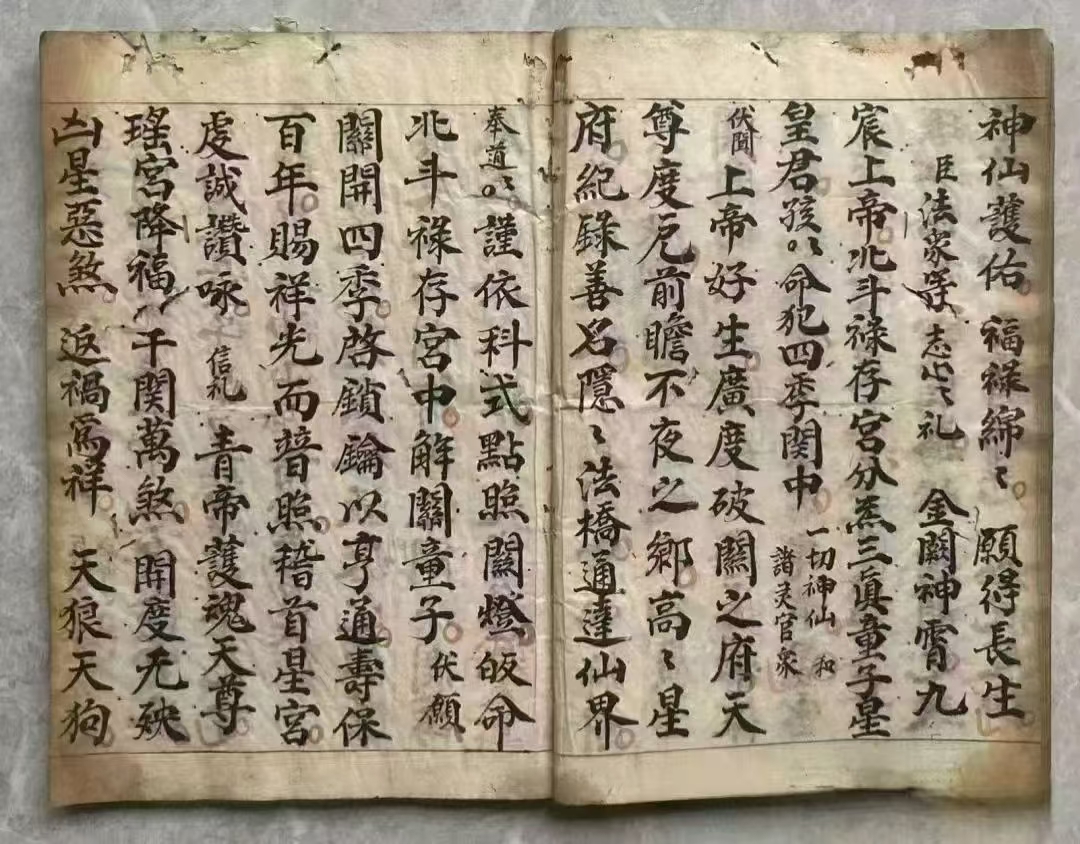 神仙護佑福禄綿〻願得長生
臣法衆等志心〻礼金闕神霄九
宸上帝北斗禄存宮分炁三真童子星
皇君孩〻命犯四季関中一切神仙和諸夫官衆
伏聞上帝好生廣度破關之府天
尊度厄前瞻不夜之鄉高〻星
府紀錄善名隱〻法橋通達仙界
奉道〻謹依科式點照關燈皈命
北斗祿存宮中解關童子伏願
關開四季啓鎖鑰以亨通壽保
百年賜祥光而普照稽首星宮
虔誠讚咏信礼青帝護魂天尊
瑤宮降福千関萬煞開度无殃
凶星惡煞返禍為祥天狼天狗